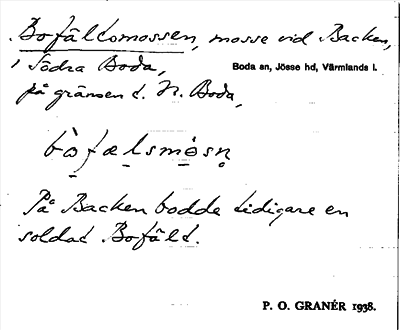 Bofältsmossen, mosse vid Backen,
i Södra Boda,
Boda sn, Jösse hd, Värmlands l.
på gränsen t. N. Boda,
bòfælsmòsn̥
På Backen bodde tidigare en
soldat Bofält.
P. O. GRANÉR 1938.